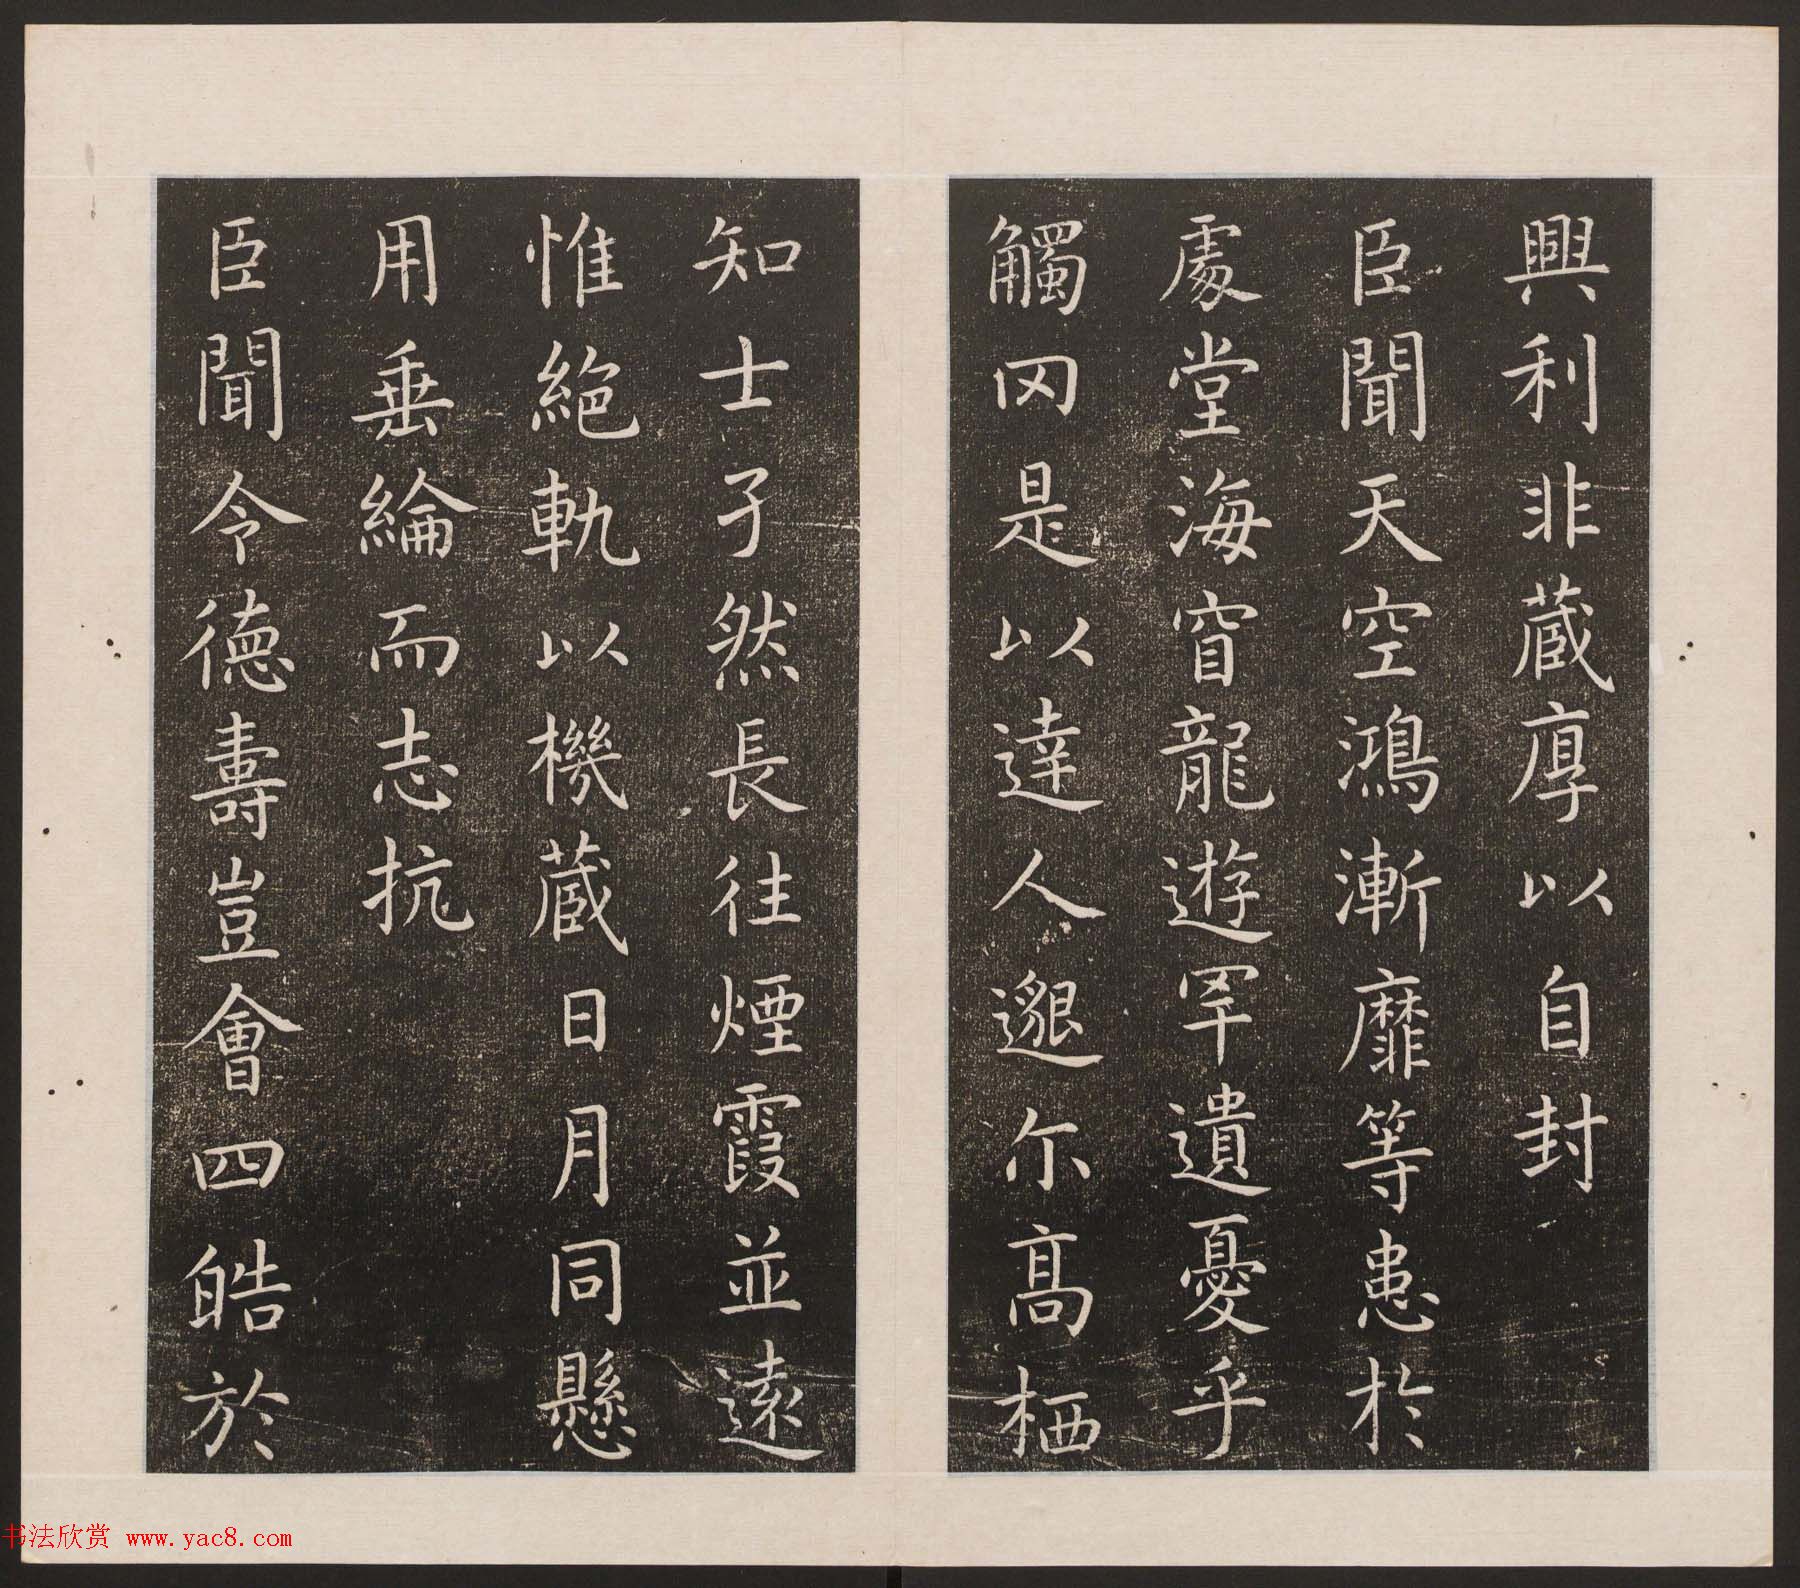 興利非蔵厚以自封
臣聞天空鴻漸靡等患於
處堂海窅龍遊罕遺憂乎
觸罔是以達人邈尔高栖
知士孑然長往煙霞並遠
惟絶軌以機蔵日月同懸
用垂綸而志抗
臣聞令德壽豈會四皓於
书法欣赏 www.yac8.com